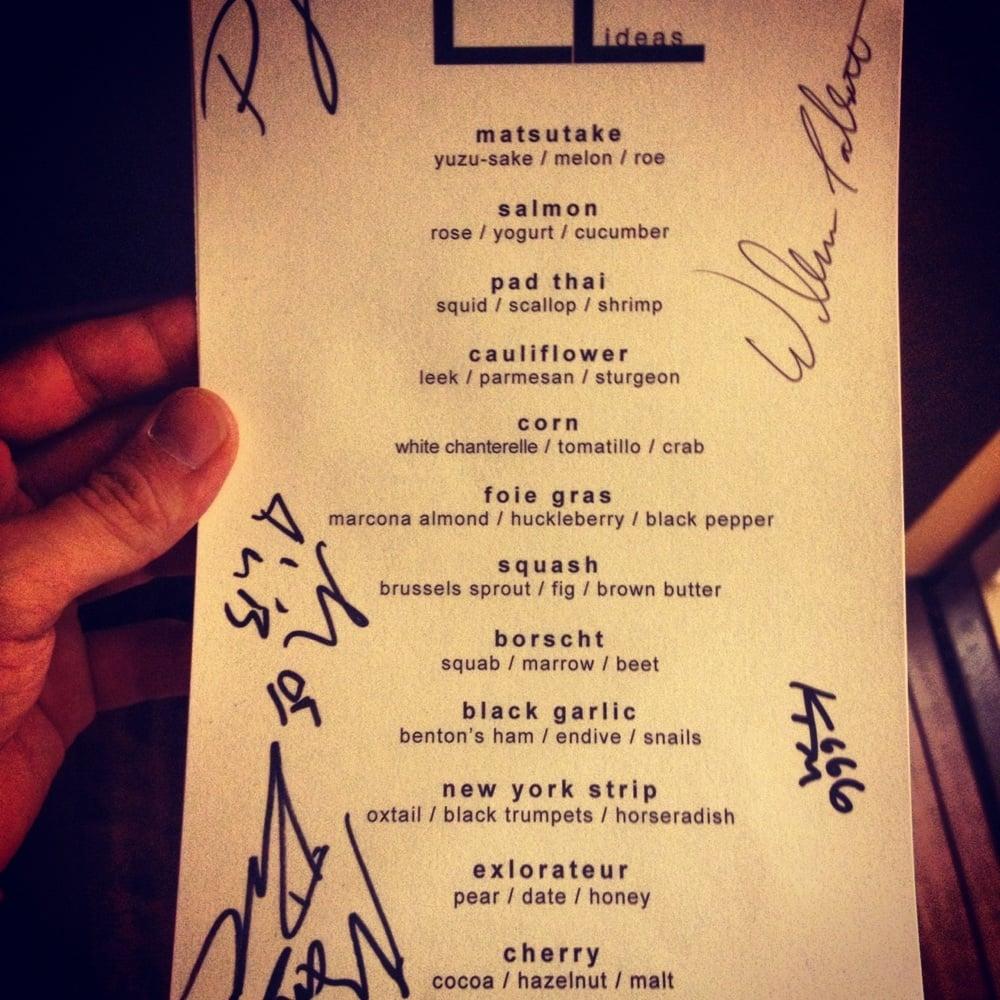 ideas
matsutake
yuzu-sake / melon / roe
salmon
rose / yogurt / cucumber
pad thai
squid / scallop / shrimp
cauliflower
leek / parmesan / sturgeon
corn
white chanterelle / tomatillo / crab
foie gras
marcona almond / huckleberry / black pepper
squash
brussels sprout / fig / brown butter
borscht
squab / marrow / beet
black garlic
benton's ham / endive / snails
new york strip
oxtail / black trumpets / horseradish
exlorateur
pear / date / honey
cherry
cocoa / hazelnut / malt